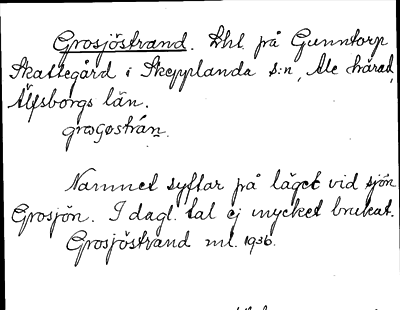 Grosjöstrand. Lht. på Gunntorp
Skattegård i Skepplanda s:n, Ale härad,
Älfsborgs län.
grosjöstrán.
Namnet syftar på läget vid sjön
Grosjön. I dagl. tal ej mycket brukat.
Grosjöstrand ml. 1936.